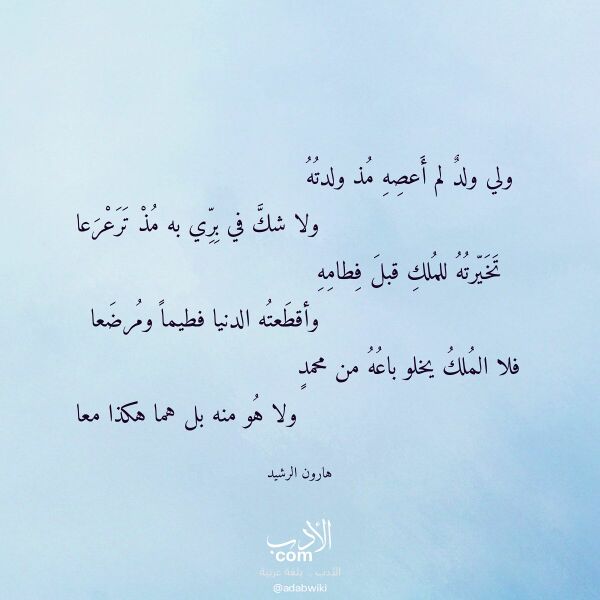 ولي ولدٌ لم أَعصِهِ مُذ ولدتُهُ
ولا شكَّ في بِرِّي به مُذْ تَرَعْرَعا
تَخَيّرتُهُ للمُلكِ قبلَ فِطامِهِ
وأقطَعتُه الدنيا فطيماً ومُرضَعا
فلا المُلكُ يخلو باعُهُ من محمدٍ
ولا هُو منه بل هما هكذا معا
هارون الرشيد
الأدب
com
الأدب .. بلغة عربية
@adabwiki